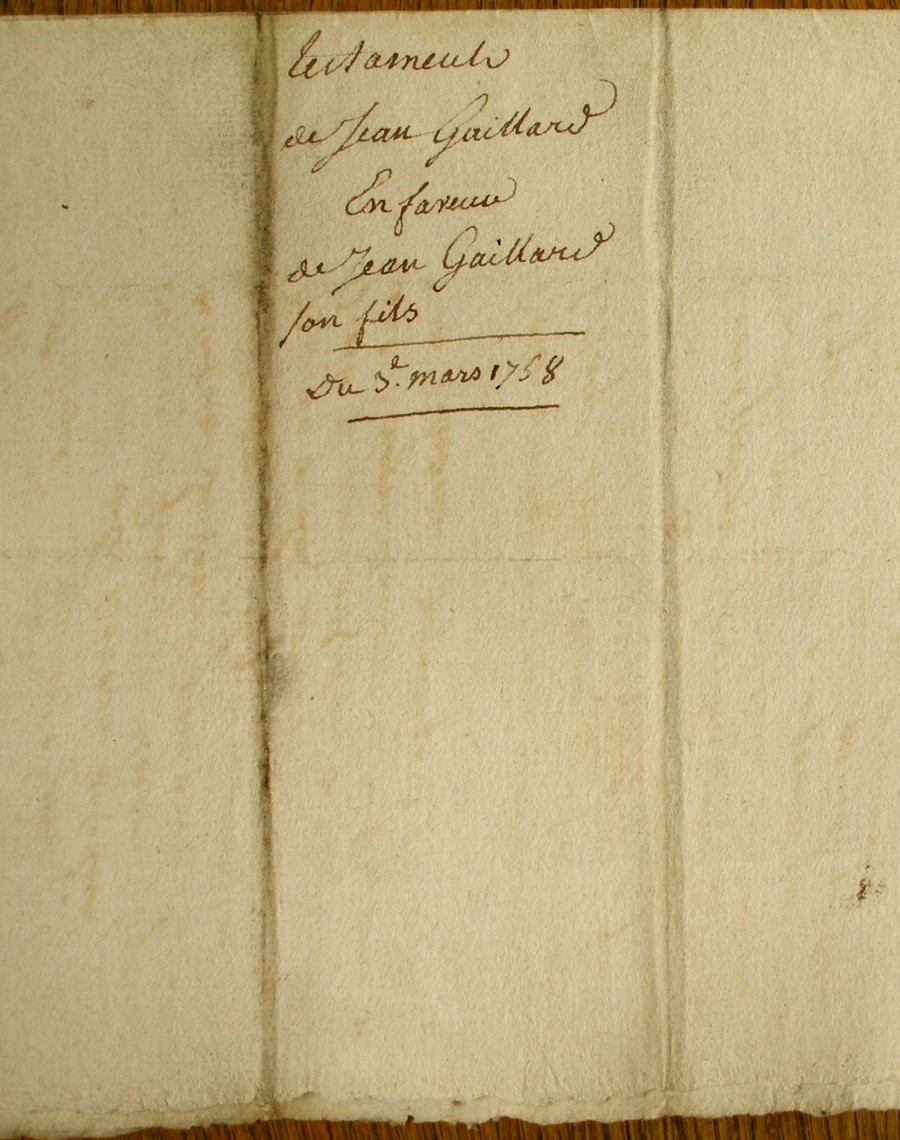 testament
de Jean Gaillard
En faveur
de Jean Gaillard
son fils
Du 3e. mars 1758